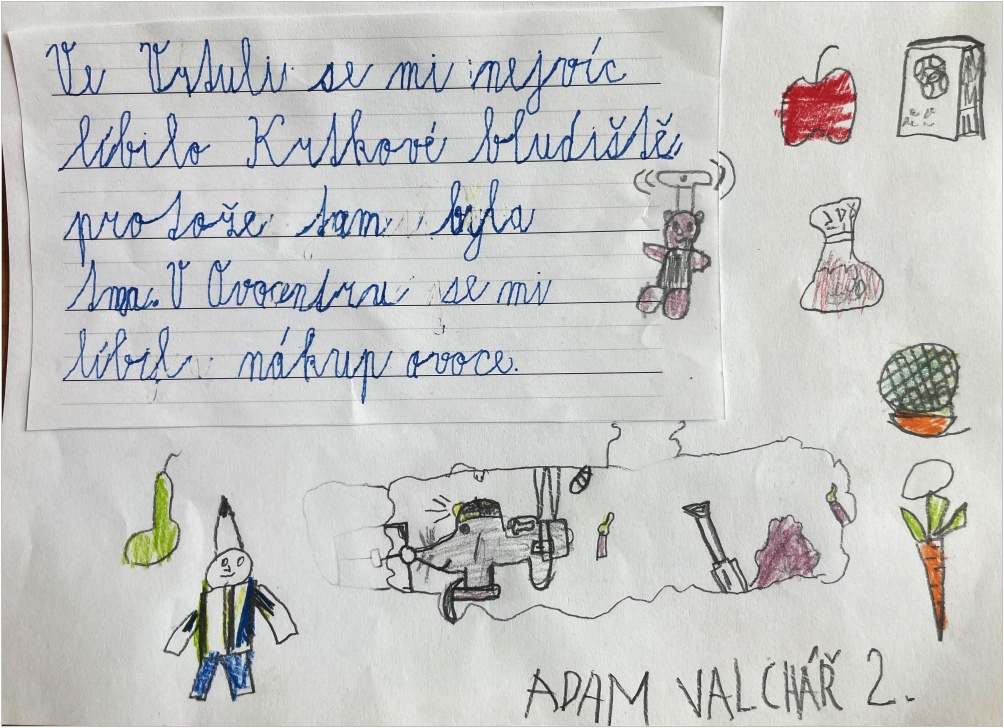 Ve Vrtuli se mi nejvíc
líbilo Krtkové bludiště
protože tam byla
tma. V Ovocentru se mi
líbil nákup ovoce.
ADAM VALCHÁŘ 2.